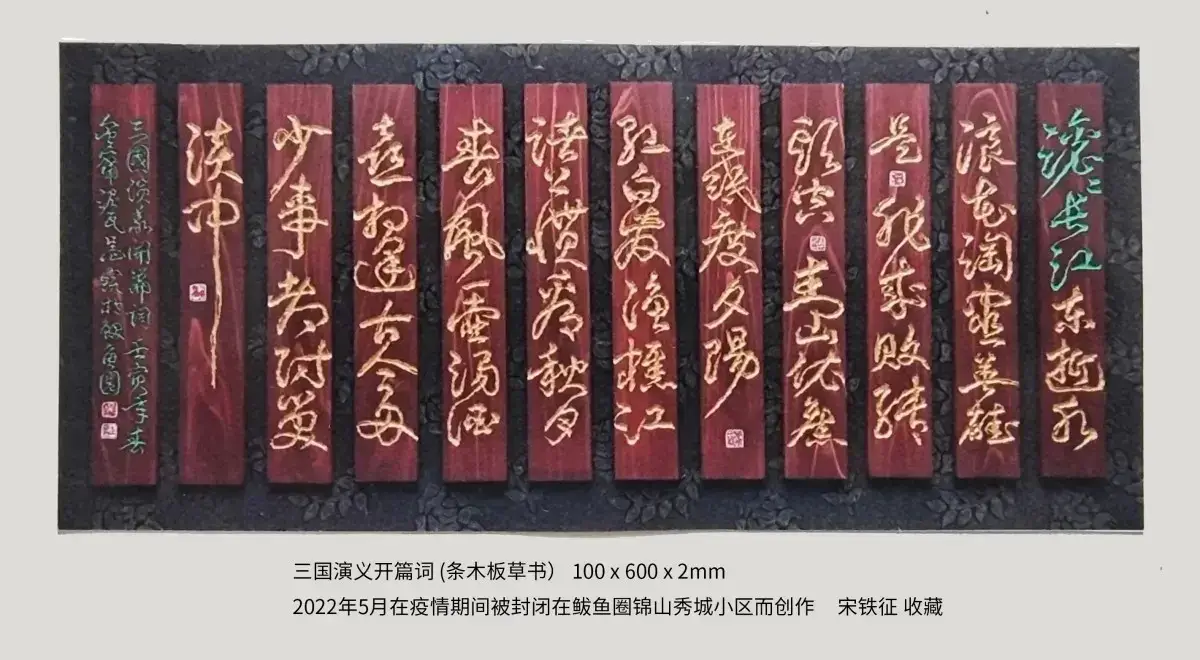 滚滚长江东逝水
浪花淘尽英雄
是非成败转
头空青山依旧
在幾度夕陽
红白发渔樵江
渚上惯看秋月
春風一壶浊酒
喜相逢古今多
少事都付笑
谈中
三國演義開篇词 壬寅年春
於鲅魚圈
三国演义开篇词 (条木板草书） 100 x 600 x 2mm
2022年5月在疫情期间被封闭在鲅鱼圈锦山秀城小区而创作 宋铁征 收藏